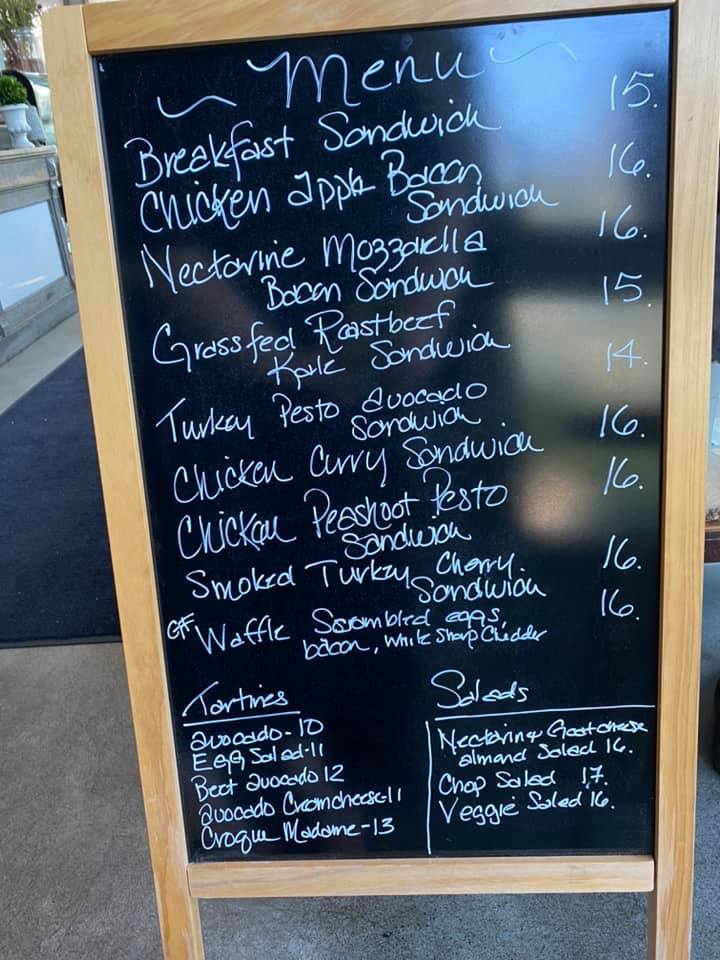 ~ Menu ~
Breakfast Sandwich 15.
Chicken apple Bacon 16.
Sandwich
Nectarine Mozzarella 16.
Bacon Sandwich
Grassfed Roastbeef 15.
Kale Sandwich
Turkey Pesto avocado 14.
Sandwich
Chicken Curry Sandwich 16.
Chicken Peashoot Pesto 16.
Sandwich
Smoked Turkey Cherry. 16.
Sandwich
GF Waffle Scrambled eggs, 16.
bacon, White Sharp Cheddar
Tartines
avocado - 10
Egg Salad - 11
Beet avocado 12
avocado Creamcheese - 11
Croque Madame - 13
Salads
Nectarine Goatcheese
almond Salad 16.
Chop Salad 17.
Veggie Salad 16.